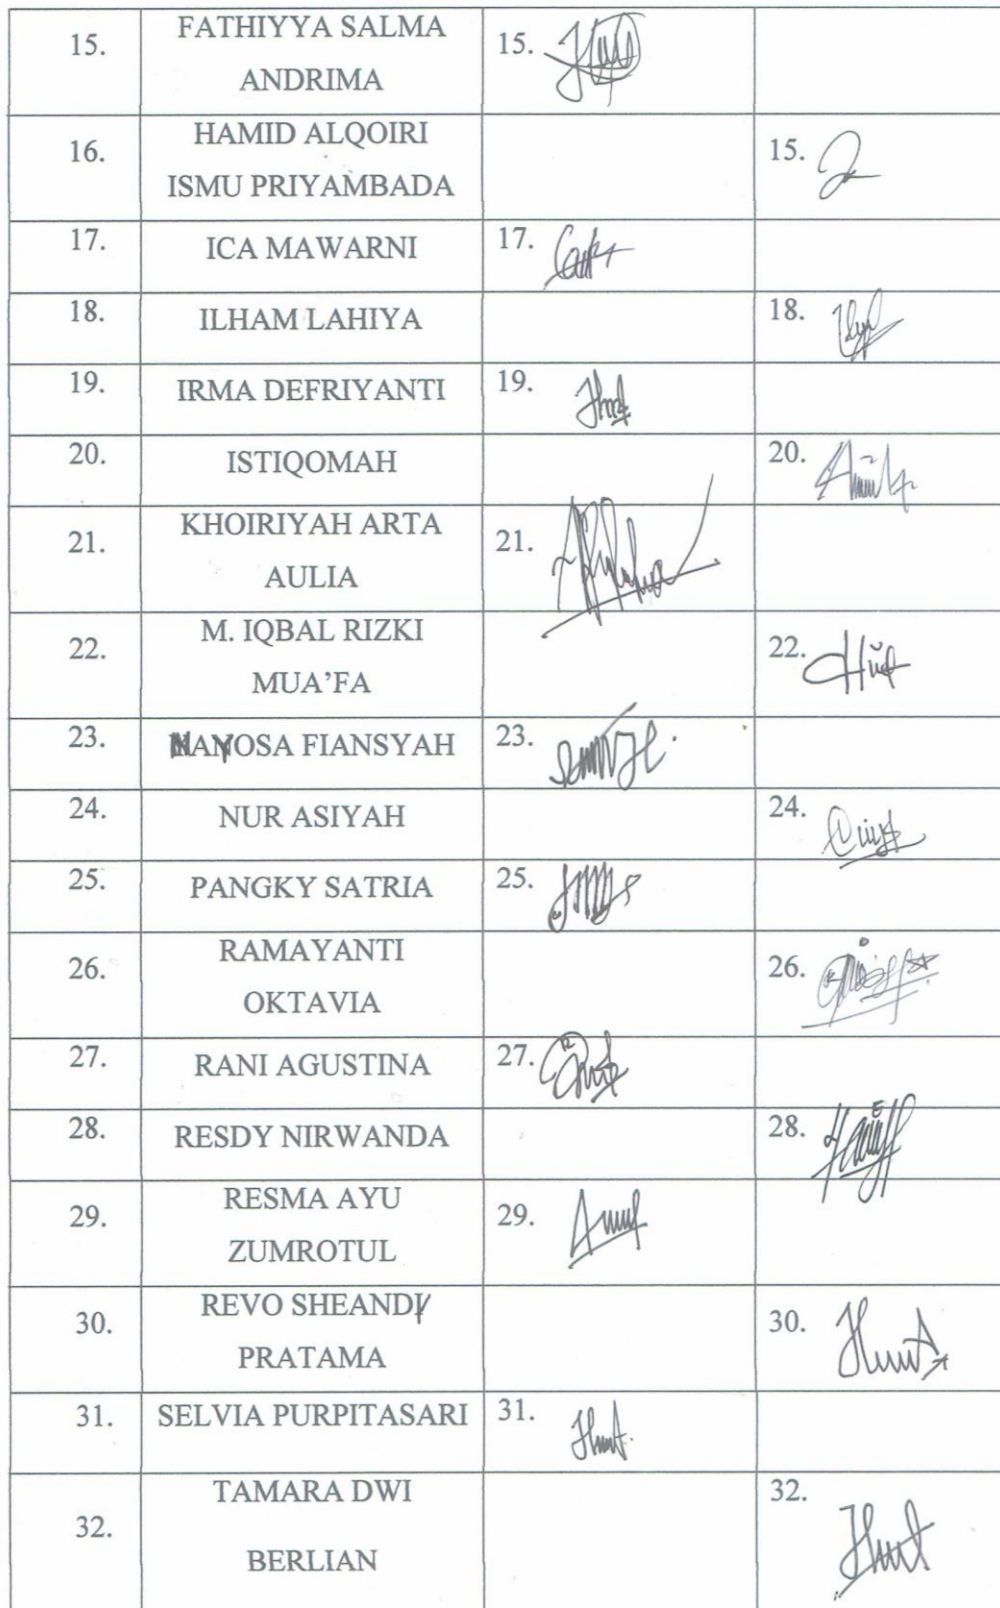 15.
FATHIYYA SALMA
ANDRIMA
15.
16.
HAMID ALQOIRI
ISMU PRIYAMBADA
15.
17.
ICA MAWARNI
17.
18.
ILHAM LAHIYA
18.
19.
IRMA DEFRIYANTI
19.
20.
ISTIQOMAH
20.
21.
KHOIRIYAH ARTA
AULIA
21.
22.
M. IQBAL RIZKI
MUA’FA
22.
23.
NAYOSA FIANSYAH
23.
24.
NUR ASIYAH
24.
25.
PANGKY SATRIA
25.
26.
RAMAYANTI
OKTAVIA
26.
27.
RANI AGUSTINA
27.
28.
RESDY NIRWANDA
28.
29.
RESMA AYU
ZUMROTUL
29.
30.
REVO SHEANDY
PRATAMA
30.
31.
SELVIA PURPITASARI
31.
32.
TAMARA DWI
BERLIAN
32.